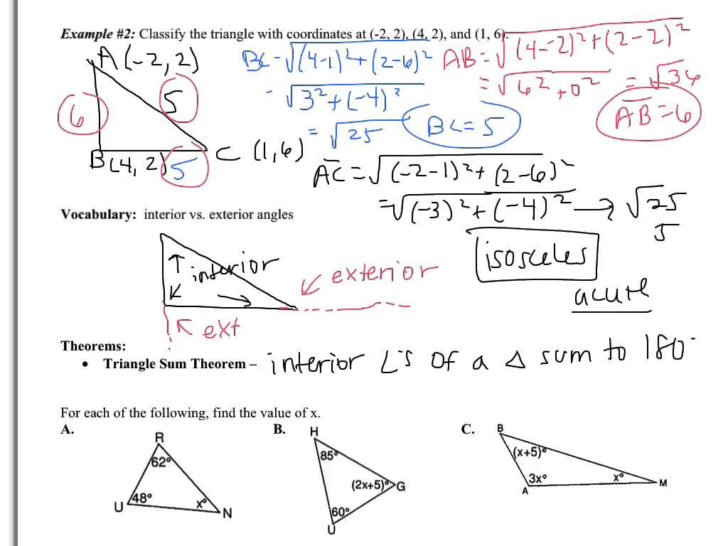 Example #2: Classify the triangle with coordinates at (-2, 2), (4, 2), and (1, 6).
A(-2,2)
BC = √(4-1)²+(2-6)²
AB = √(4--2)²+(2-2)²
= √3²+(-4)²
= √6²+0² = √36
6
5
= √25
BC=5
AB=6
B(4, 2)
5
C (1,6)
AC = √(-2-1)²+(2-6)²
= √(-3)²+(-4)² → √25
5
Vocabulary: interior vs. exterior angles
isosceles
interior
exterior
acute
ext
Theorems:
• Triangle Sum Theorem – interior ∠'s of a △ sum to 180°
For each of the following, find the value of x.
A.
R
62°
48°
x°
U
N
B.
H
85°
(2x+5)°
G
60°
U
C.
B
(x+5)°
3x°
x°
A
M